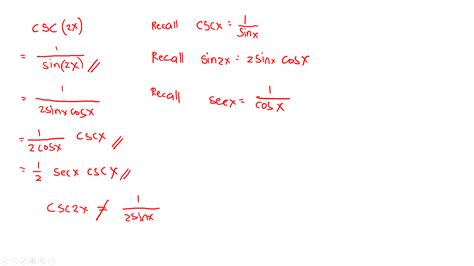 csc(2x)
Recall cscx = 1/sinx
= 1/sin(2x) //
Recall sin2x = 2sinx cosx
= 1/2sinxcosx
Recall secx = 1/cosx
= 1/2cosx cscx //
= 1/2 secx cscx //
csc2x ≠ 1/2sinx